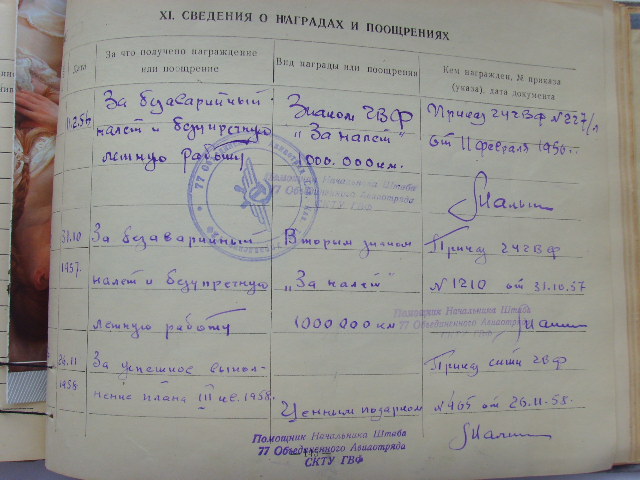 XI. СВЕДЕНИЯ О НАГРАДАХ И ПООЩРЕНИЯХ
Дата
За что получено награждение
или поощрение
Вид награды или поощрения
Кем награжден, № приказа
(указа), дата документа
За безаварийный
налет и безупречную
летную работу
Знаком ГВФ
"За налет"
1000.000 км.
Приказ ГУГВФ №227/л
от 11 февраля 1956г.
77
Помощник Начальника Штаба
77 Объединенного Авиаотряда
СКТУ ГВФ
31.10
1957.
За безаварийный
налет и безупречную
летную работу
Вторым знаком
"За налет"
1000000 км
Приказ ГУГВФ
№ 1210 от 31.10.57
Помощник Начальника Штаба
77 Объединенного Авиаотряда
26.11
1958.
За успешное выпол-
нение плана III кв. 1958.
Ценным подарком
Приказ СКТУ ГВФ
№ 465 от 26.11.58.
Помощник Начальника Штаба
77 Объединенного Авиаотряда
СКТУ ГВФ